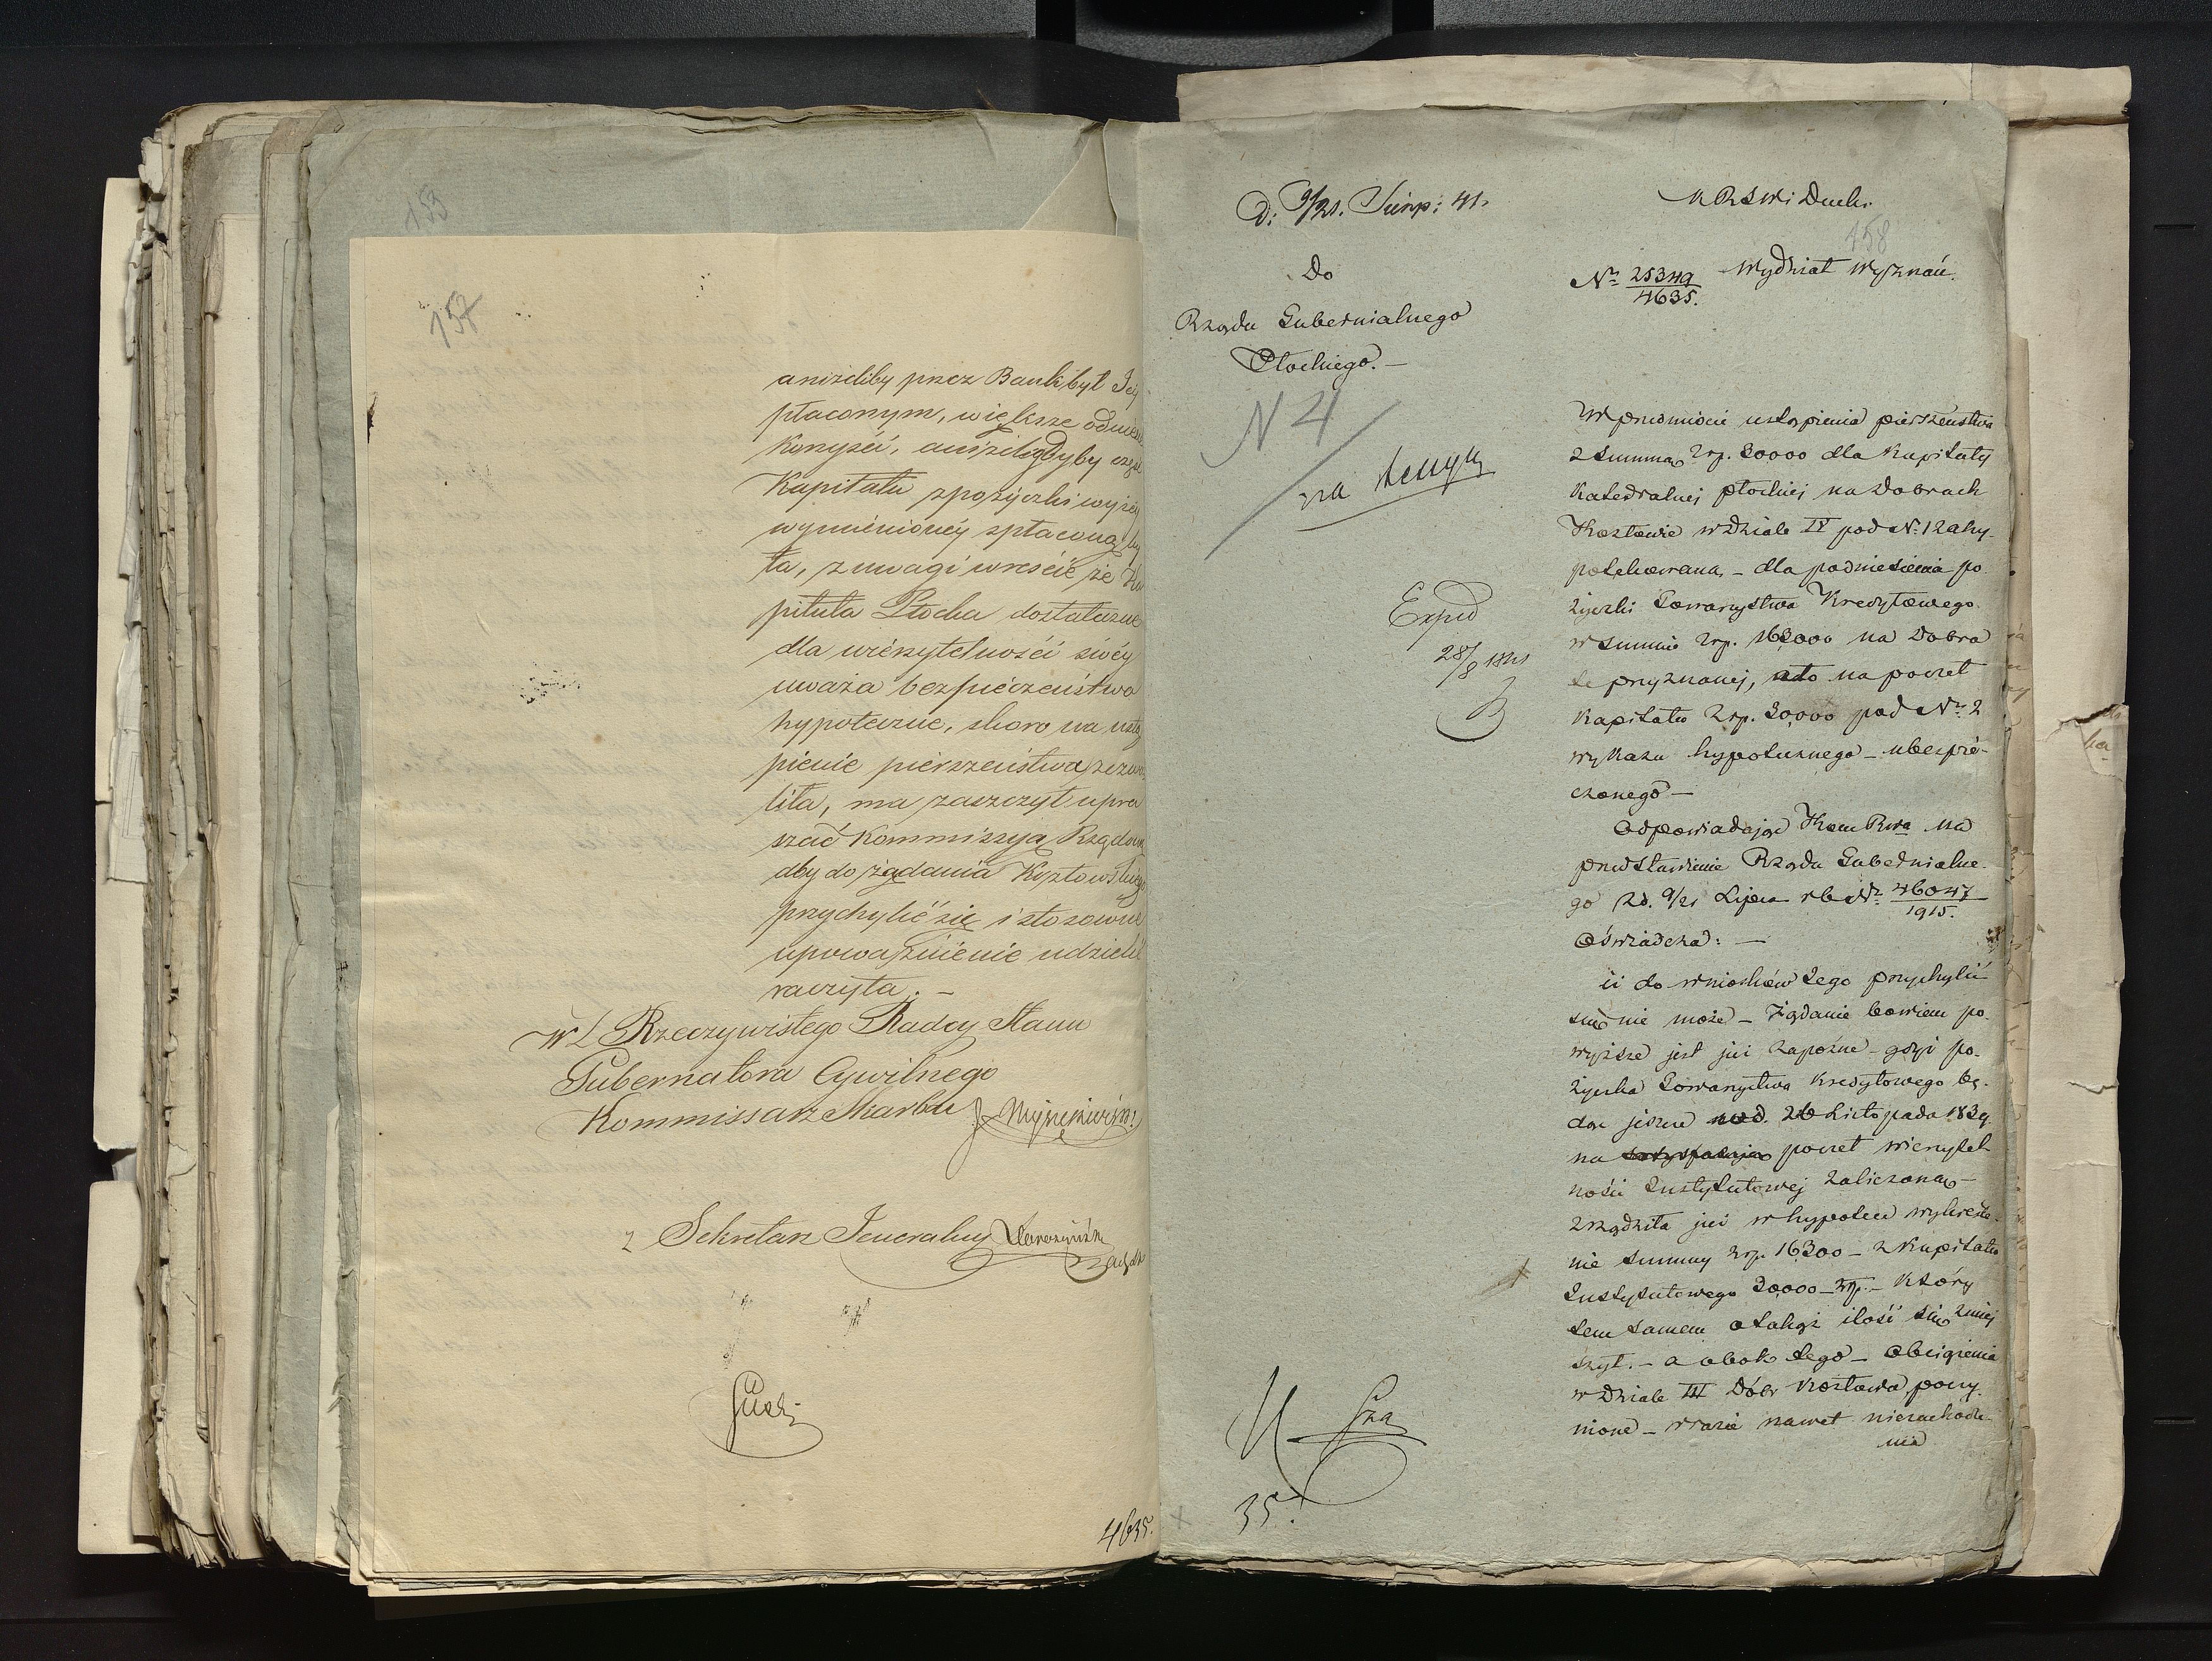 153
157
aniżeliby przez Bank był Jej
płaconym, większe odnieść
Korzyści, aniżeli gdyby część
Kapitału z pożyczki wyżej
wymienioney spłaconą by
ła, z uwagi wreście że Ka
pituła Płocka dostateczne
dla wierzytelności swéy
uważa bezpieczeństwo
hypoteczne, skoro na ustą
pienie pierszeństwa zezwo
liła, ma zaszczyt upra
szać Kommissyą Rządową
aby do żądania Kozłowskiego
przychylić się i stosowne
upoważnienie udzielić
raczyła. –
w Z Rzeczywistego Radcy Stanu
Gubernatora Cywilnego
Kommissarz Skarbu
z Sekretarz Jeneralny
4635.
D: 9/21. Sierp: 41.
Do
Rządu Gubernialnego
Płockiego. –
N 4
Exped
28/8 1841
35.
K R S W i Duch.
158
Nr 25349/4635. Wydział Wyznań.
W przedmiocie ustąpienia pierszeństwa
z summą zrp. 30000 dla Kapituły
Katedralnej płockiej na dobrach
w dziale IV pod N. 1 zahy-
potekowaną – dla podniesienia po
życzki Towarzystwa Kredytowego
w summie zrp. na dobra
te przyznanej, a to na poczet
Kapitału zrp. 30,000 pod Nr 2
wykazu hypotecznego – ubezpie-
czonego –
Odpowiadając Kom Rwa na
przedstawienie Rządu Gubernialne-
go z d. 9/21 Lipca rb Nr 46047/1915.
Oświadcza: –
iż do wniosków tego przychylić
się nie może – Żądanie bowiem po-
wyższe jest już zapoźne – gdyż po-
życzka Towarzystwa Kredytowego bę-
dąc jeszcze d. Listopada 1839.
na poczet wierzytel
ności Instytutowej zaliczoną –
zrządziła już w hypotece wykreśle-
nie summy zrp. 16300 – z Kapitału
Instytutowego 30,000 – zrp. – który
tem samem o takąż ilość się zmniej
szył. – a obok tego – obciążenia
w Dziale III Dóbr poczy-
nione – w razie nawet niezachodze-
nia